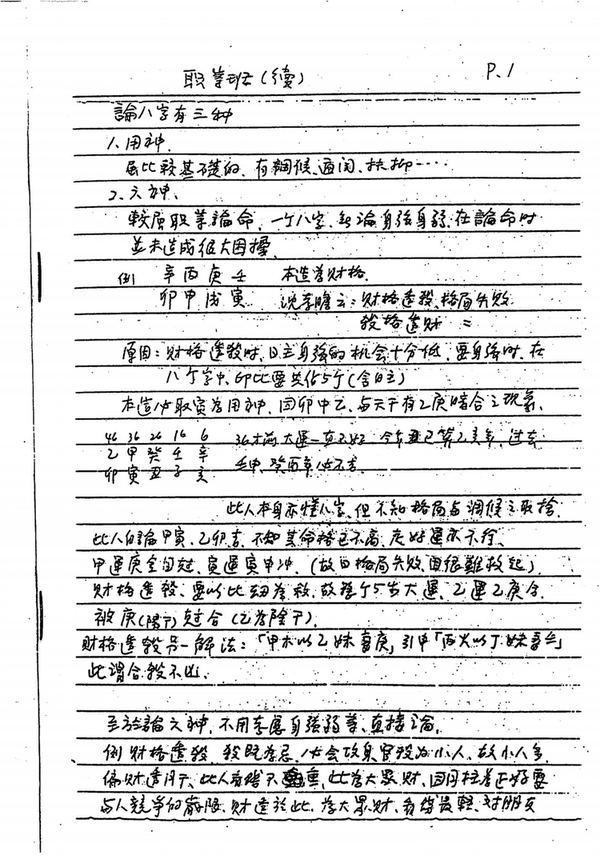 职業班(續) P.1
論八字有三种
1.用神.
屬比較基礎的.有調候、通関、扶抑····
2.六神、
較屬职業論命.一个八字.無論身強身弱.在論命时
並未造成很大困擾.
例 辛丙庚壬 本造為財格.
卯申戌寅 沈孝瞻云:財格逢殺.格局失敗
殺格逢財 =
原因:財格逢殺时.日主身強的机会十分低.要身強时.在
八个字中.印比要共佔5个(含日主)
本造必取寅為用神.因卯中乙.与天干有乙庚暗合之現象.
46 36 26 16 6 36才前大運一直不好 今年丑已算乙亥年.过去
乙甲癸壬辛 壬申.癸酉年必不吉.
卯寅丑子亥
此人本身亦懂八字.但不知格局与調候之取捨
此人自論甲寅、乙卯吉.不知其命格已不高.庆好運亦不行.
甲運庚金回尅.寅運寅申冲.(故曰格局失敗.因很難救起)
財格逢殺.要以比劫為救.故整个5步大運.乙運乙庚合.
被庚(陽干)尅合(乙為陰干).
財格逢殺另一解法:「甲木以乙妹妻庚」引申「丙火以丁妹妻壬」
此謂合殺不凶.
至於論六神.不用考慮身強弱等.直接論.
例 財格逢殺.殺既為忌.必会攻身.官殺為小人.故小人多.
偏財透月干.此人看錢不重.此為大眾財.因月柱為正好要
与人競爭的階段.財透於此.為大眾財.看錢最輕.对朋友